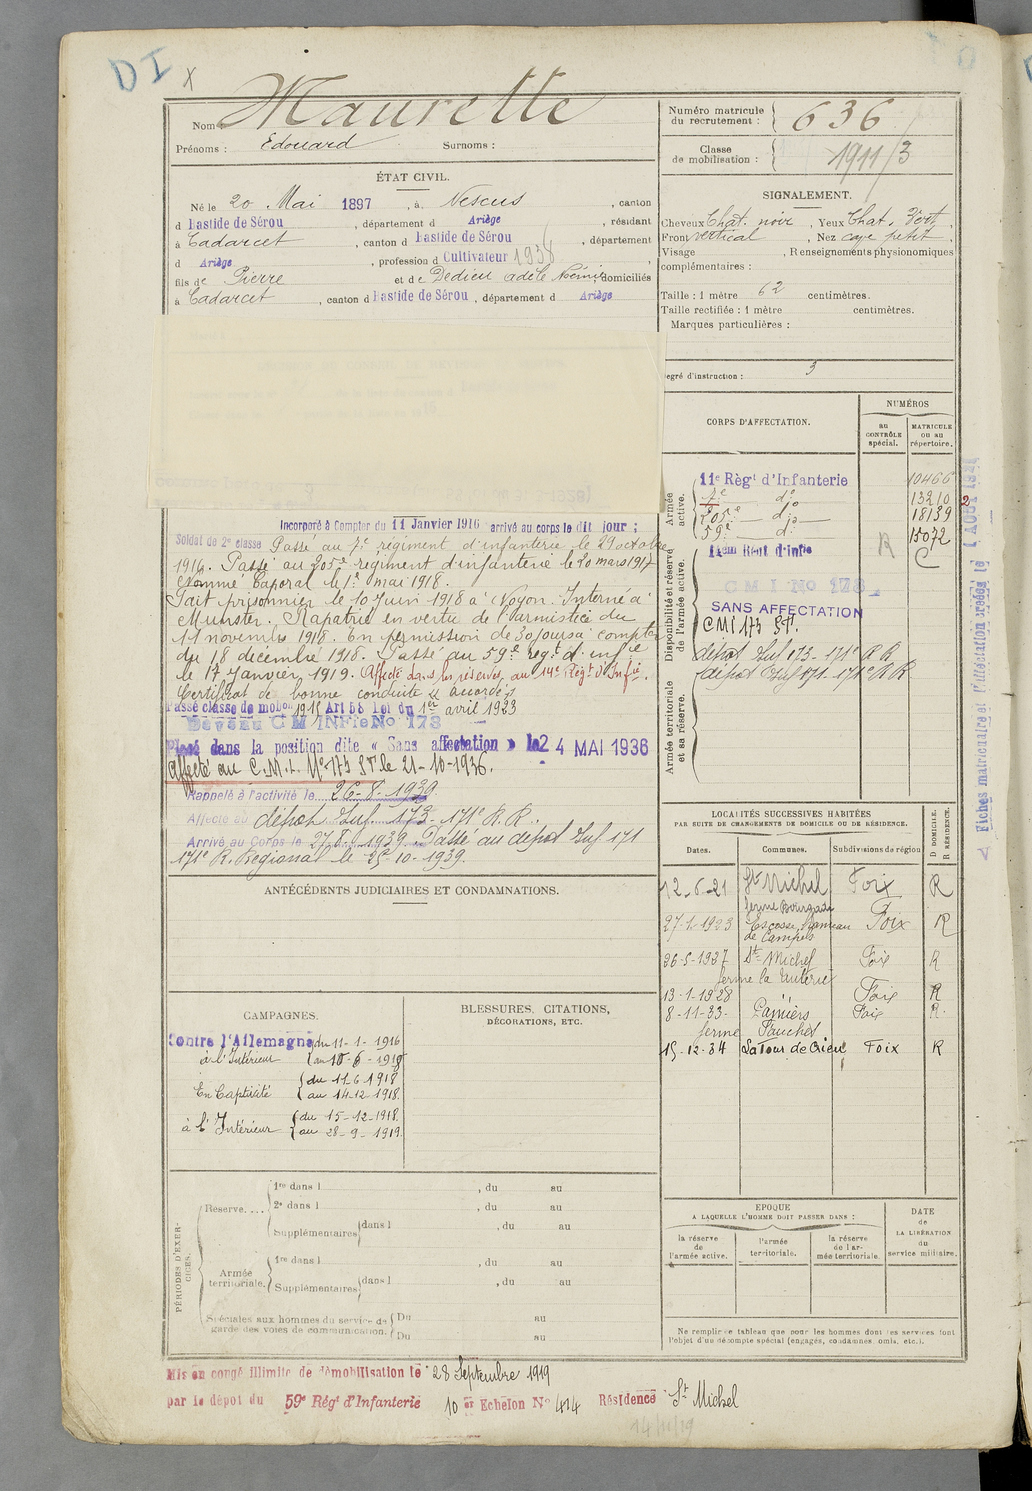 DI
X
Nom : Maurette
Prénoms : Edouard Surnoms :
Numéro matricule du recrutement : 636
Classe de mobilisation : 1911/3
ÉTAT CIVIL.
Né le 20 Mai 1897, à Nescus, canton
d Bastide de Sérou, département d Ariège, résidant
à Cadarcet, canton d Bastide de Sérou, département
d Ariège, profession d Cultivateur 1938
fils de Pierre et de Dedieu adèle Noémie, domiciliés
à Cadarcet, canton d Bastide de Sérou, département d Ariège
SIGNALEMENT.
Cheveux Chat. noir, Yeux Chat. Vert,
Front vertical, Nez petit,
Visage , Renseignements physionomiques
complémentaires :
Taille : 1 mètre 62 centimètres.
Taille rectifiée : 1 mètre centimètres.
Marques particulières :
Degré d'instruction : 3
Incorporé à Compter du 11 Janvier 1916 arrivé au corps le dit jour ;
Soldat de 2e classe Passé au 7e régiment d'infanterie le 29 octobre
1916. Passé au 205e régiment d'infanterie le 20 mars 1917
Nommé Caporal le 1er mai 1918.
Fait prisonnier le 10 Juin 1918 à Noyon. Interné à
Munster. Rapatrié en vertu de l'armistice du
11 novembre 1918. En permission de 30 jours à compter
du 18 décembre 1918. Passé au 59e régt d'infie
le 17 Janvier 1919. Affecté dans les réserves au 14e Régt d'Infie.
Certificat de bonne conduite "accordé"
Passé classe de mobon 1915 Art 58 Loi du 1er avril 1923
Devenu C M INFie No 173
Placé dans la position dite « Sans affectation » le 24 MAI 1936
Affecté au C.M.I. No 173 St le 21-10-1936.
Rappelé à l'activité le 26-8-1939
Affecté au dépôt Inf. 173 - 171e R.R.
Arrivé au Corps le 27.8.1939. Passé au dépôt Inf 171
171e R. Régional le 25-10-1939.
CORPS D'AFFECTATION.
NUMÉROS
au CONTRÔLE spécial.
MATRICULE ou au répertoire.
Armée active.
11e Régt d'Infanterie 10466
7e do 13210
205e do 18139
59e d: 15072
R C
Disponibilité et réserve de l'armée active.
14em Régt d'Infie
C M I No 173
SANS AFFECTATION
CMI 173 St.
dépôt Inf 173 - 171e R R
dépôt Inf 171 - 171e R R
Armée territoriale et sa réserve.
Fiches matriculaire et d'affectation créées le AOUT
ANTÉCÉDENTS JUDICIAIRES ET CONDAMNATIONS.
LOCALITÉS SUCCESSIVES HABITÉES
PAR SUITE DE CHANGEMENTS DE DOMICILE OU DE RÉSIDENCE.
Dates. Communes. Subdivisions de région D DOMICILE. R RÉSIDENCE.
12-6-21 St Michel Foix R
ferme Bourgade
27-1-1923 Escosse, hameau Foix R
de Campels
26-5-1927 St Michel Foix R
13-1-1928 " Foix R
8-11-33- Pamiers Foix R.
ferme
15-12-34 La Tour de Crieu Foix R
CAMPAGNES.
Contre l'Allemagne du 11-1-1916
à l'Intérieur au 10-6-1918
En Captivité du 11-6-1918
au 14-12-1918.
à l'Intérieur du 15-12-1918.
au 28-9-1919.
BLESSURES, CITATIONS,
DÉCORATIONS, ETC.
PÉRIODES D'EXERCICES.
Réserve....
1re dans l , du au
2e dans l , du au
Supplémentaires dans l , du au
Armée territoriale.
1re dans l , du au
Supplémentaires dans l , du au
Spéciales aux hommes du service de garde des voies de communication.
Du au
Du au
EPOQUE
A LAQUELLE L'HOMME DOIT PASSER DANS :
la réserve de l'armée active.
l'armée territoriale.
la réserve de l'armée territoriale.
DATE de LA LIBÉRATION du service militaire.
Ne remplir ce tableau que pour les hommes dont les services font
l'objet d'un décompte spécial (engagés, condamnés, omis, etc.).
Mis en congé illimité de démobilisation le 28 Septembre 1919
par le dépôt du 59e Régt d'Infanterie 10 er Echelon No 414 Résidence St Michel